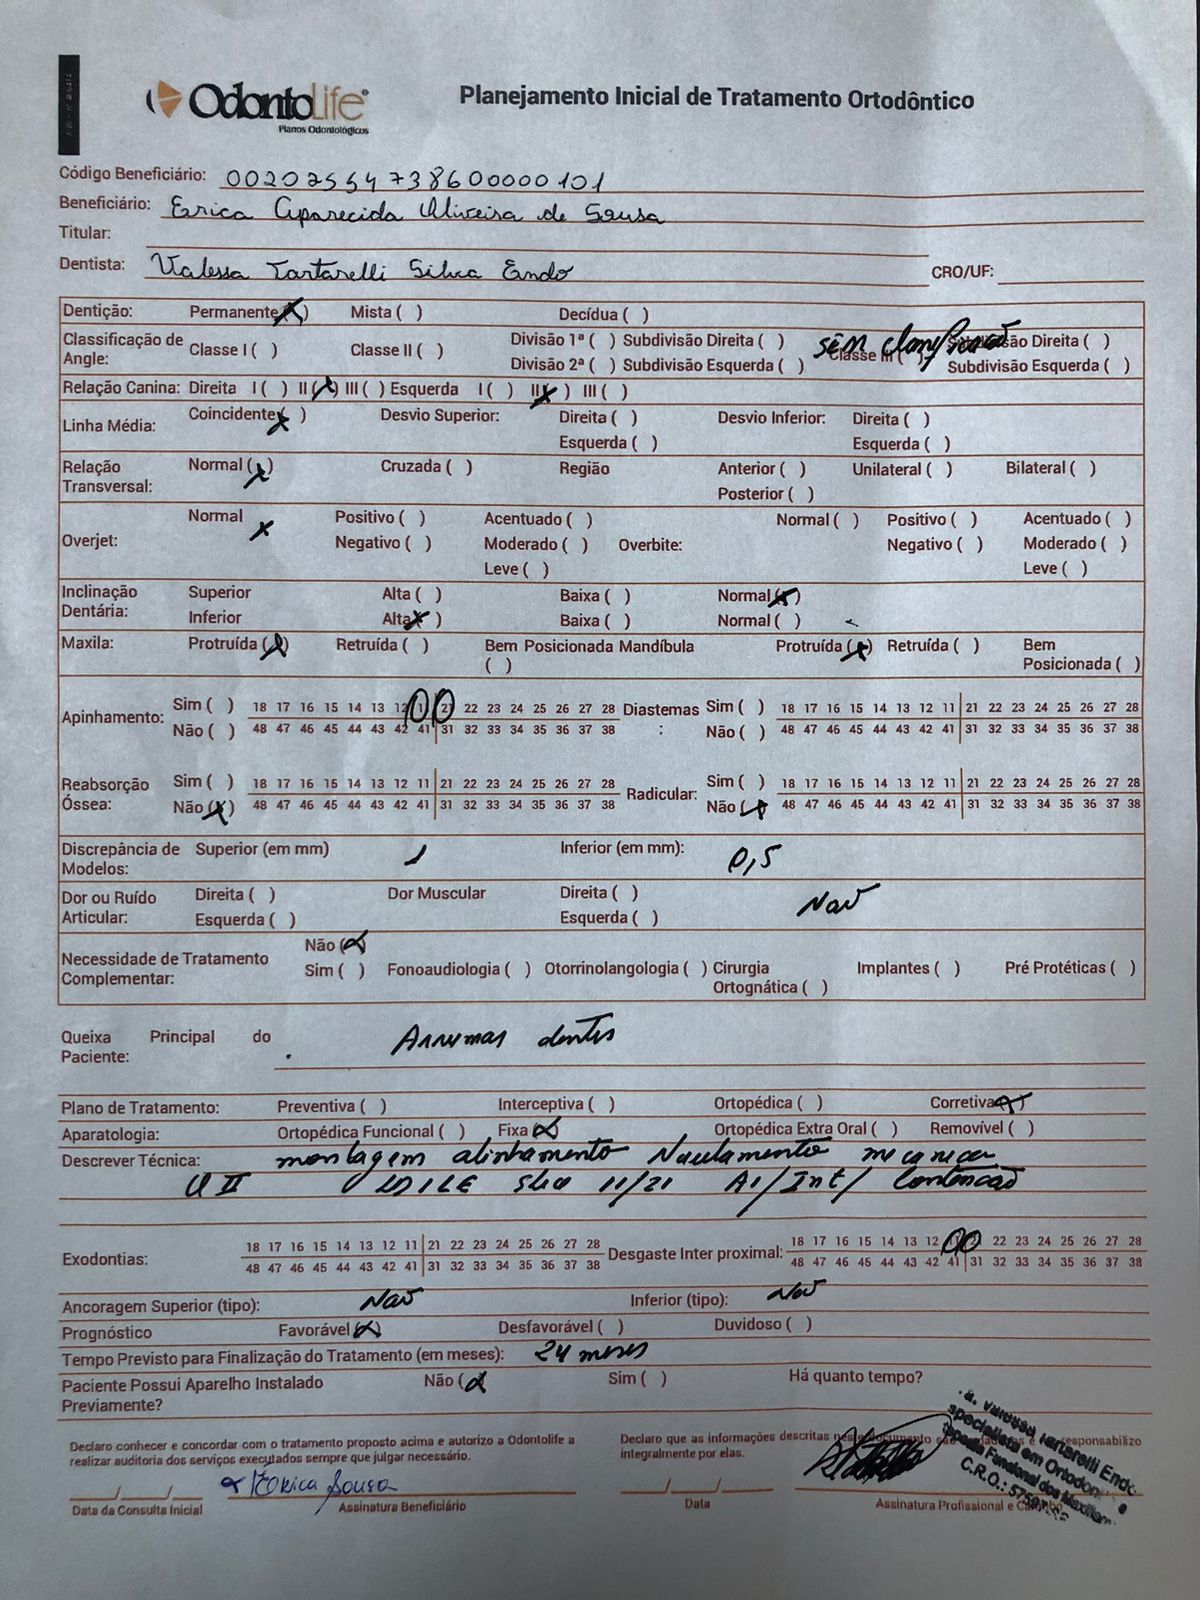 OdontoLife®
Planos Odontológicos
Planejamento Inicial de Tratamento Ortodôntico
Código Beneficiário: 00202554738600000101
Beneficiário: Erica Aparecida Oliveira de Sousa
Titular:
Dentista: Valessa Tartarelli Silva Endo CRO/UF:
Dentição: Permanente (X) Mista ( ) Decídua ( )
Classificação de Angle: Classe I ( ) Classe II ( ) Divisão 1ª ( ) Subdivisão Direita ( ) Classe III ( ) Subdivisão Direita ( )
Divisão 2ª ( ) Subdivisão Esquerda ( ) Subdivisão Esquerda ( )
sem
Relação Canina: Direita I ( ) II (X) III ( ) Esquerda I ( ) II (X) III ( )
Linha Média: Coincidente (X) Desvio Superior: Direita ( ) Desvio Inferior: Direita ( )
Esquerda ( ) Esquerda ( )
Relação Transversal: Normal (X) Cruzada ( ) Região Anterior ( ) Unilateral ( ) Bilateral ( )
Posterior ( )
Overjet: Normal X Positivo ( ) Acentuado ( ) Overbite: Normal ( ) Positivo ( ) Acentuado ( )
Negativo ( ) Moderado ( ) Negativo ( ) Moderado ( )
Leve ( ) Leve ( )
Inclinação Dentária: Superior Alta ( ) Baixa ( ) Normal (X)
Inferior Alta (X) Baixa ( ) Normal ( )
Maxila: Protruída (X) Retruída ( ) Bem Posicionada ( ) Mandíbula Protruída (X) Retruída ( ) Bem Posicionada ( )
Apinhamento: Sim ( ) 18 17 16 15 14 13 12 11 21 22 23 24 25 26 27 28 Diastemas: Sim ( ) 18 17 16 15 14 13 12 11 21 22 23 24 25 26 27 28
Não ( ) 48 47 46 45 44 43 42 41 31 32 33 34 35 36 37 38 Não ( ) 48 47 46 45 44 43 42 41 31 32 33 34 35 36 37 38
Reabsorção Óssea: Sim ( ) 18 17 16 15 14 13 12 11 21 22 23 24 25 26 27 28 Radicular: Sim ( ) 18 17 16 15 14 13 12 11 21 22 23 24 25 26 27 28
Não (X) 48 47 46 45 44 43 42 41 31 32 33 34 35 36 37 38 Não (X) 48 47 46 45 44 43 42 41 31 32 33 34 35 36 37 38
Discrepância de Modelos: Superior (em mm) 1 Inferior (em mm): 0,5
Dor ou Ruído Articular: Direita ( ) Dor Muscular Direita ( ) Não
Esquerda ( ) Esquerda ( )
Necessidade de Tratamento Complementar: Não (X)
Sim ( ) Fonoaudiologia ( ) Otorrinolangologia ( ) Cirurgia Ortognática ( ) Implantes ( ) Pré Protéticas ( )
Queixa Principal do Paciente: Arrumar dentes
Plano de Tratamento: Preventiva ( ) Interceptiva ( ) Ortopédica ( ) Corretiva (X)
Aparatologia: Ortopédica Funcional ( ) Fixa (X) Ortopédica Extra Oral ( ) Removível ( )
Descrever Técnica: montagem alinhamento Nivelamento mecanica
II 11/21 Int/ Contencao
Exodontias: 18 17 16 15 14 13 12 11 21 22 23 24 25 26 27 28 Desgaste Inter proximal: 18 17 16 15 14 13 12 11 21 22 23 24 25 26 27 28
48 47 46 45 44 43 42 41 31 32 33 34 35 36 37 38 48 47 46 45 44 43 42 41 31 32 33 34 35 36 37 38
Ancoragem Superior (tipo): Não Inferior (tipo): Não
Prognóstico Favorável (X) Desfavorável ( ) Duvidoso ( )
Tempo Previsto para Finalização do Tratamento (em meses): 24 meses
Paciente Possui Aparelho Instalado Previamente? Não (X) Sim ( ) Há quanto tempo?
Declaro conhecer e concordar com o tratamento proposto acima e autorizo a Odontolife a
realizar auditoria dos serviços executados sempre que julgar necessário.
Declaro que as informações descritas neste documento são responsabilizo
integralmente por elas.
Erica Sousa
Data da Consulta Inicial Assinatura Beneficiário Data Assinatura Profissional e Carimbo
Vanessa Tartarelli Endo
specialista em Ortodon
Funcional dos Maxilar
C.R.O.: